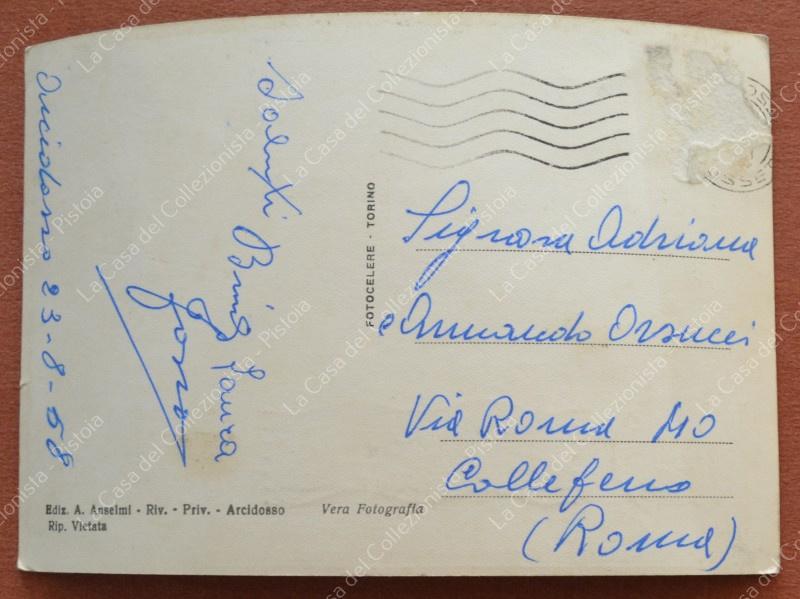 Arcidosso 23-8-58
Saluti
Laura
FOTOCELERE - TORINO
Signora Adriana
e Armando Orsucci
Via Roma 110
Colleferro
(Roma)
Ediz. A. Anselmi - Riv. - Priv. - Arcidosso
Rip. Vietata
Vera Fotografia
La Casa del Collezionista - Pistoia